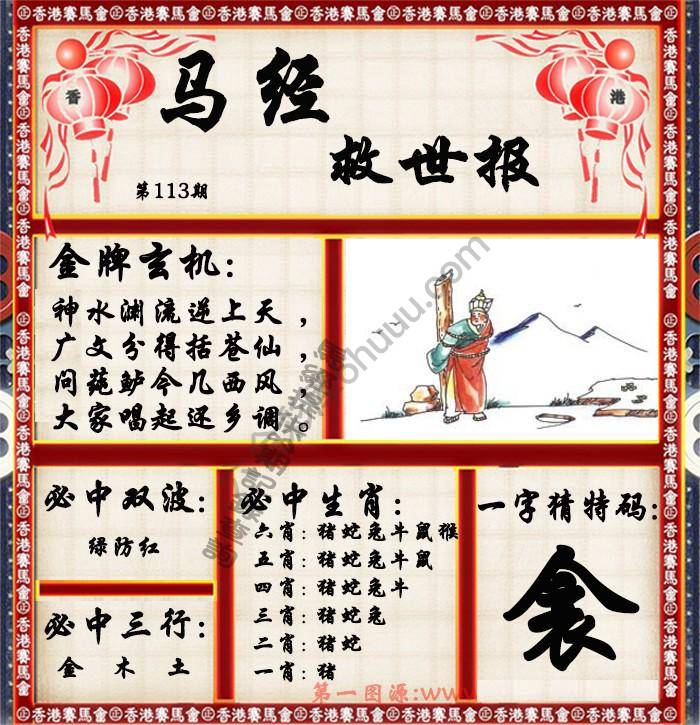 香港賽馬會
香
港
马经
救世报
第113期
金牌玄机：
神水渊流逆上天，
广文分得括苍仙，
问莼鲈今几西风，
大家唱起还乡调。
必中双波：
绿防红
必中三行：
金 木 土
必中生肖：
六肖：猪蛇兔牛鼠猴
五肖：猪蛇兔牛鼠
四肖：猪蛇兔牛
三肖：猪蛇兔
二肖：猪蛇
一肖：猪
一字猜特码：
第一图源:www